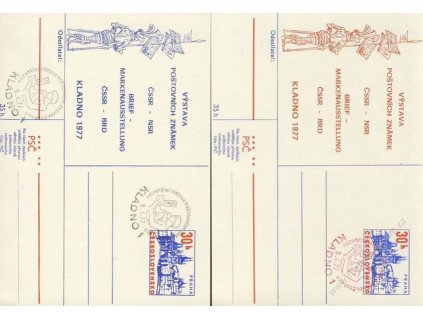 Odesílatel:
VÝSTAVA
POŠTOVNÍCH ZNÁMEK
ČSSR - NSR
BRIEF -
MARKENAUSSTELLUNG
ČSSR - BRD
KLADNO 1977
35 h
PSČ
KLADNO 1
30h
ČESKOSLOVENSKO
PRAHA
KLADNO 1
Odesílatel:
VÝSTAVA
POŠTOVNÍCH ZNÁMEK
ČSSR - NSR
BRIEF -
MARKENAUSSTELLUNG
ČSSR - BRD
KLADNO 1977
35 h
PSČ
30h
ČESKOSLOVENSKO
PRAHA
KLADNO 1